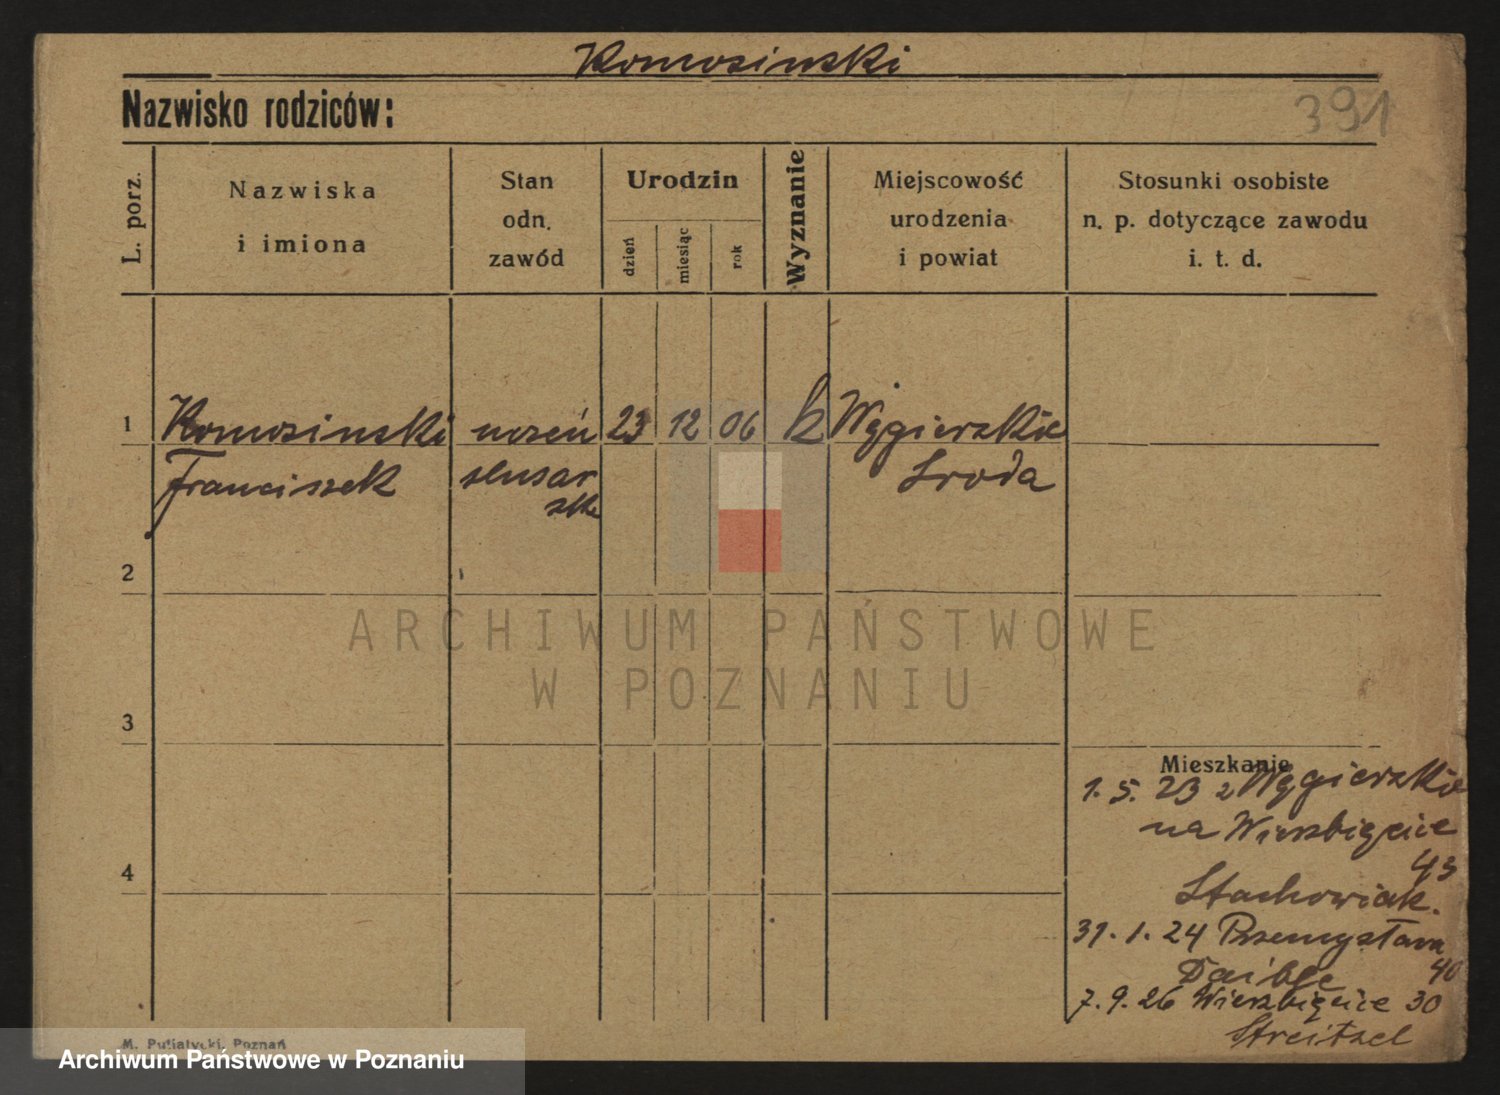 Komosinski
Nazwisko rodziców:
391
L. porz.
Nazwiska
i imiona
Stan
odn.
zawód
Urodzin
dzień
miesiąc
rok
Wyznanie
Miejscowość
urodzenia
i powiat
Stosunki osobiste
n. p. dotyczące zawodu
i. t. d.
1
Komosinski
Franciszek
uczeń
slusar
ski
23
12
06
k
Węgierskie
Sroda
2
3
4
Mieszkanie
1. 5. 23 z Węgierskie
na Wierzbięcice
43
Stachowiak.
31. 1. 24 Przemysława
40
7. 9. 26 Wierzbięcice 30
Streitzel
M. Putiatycki, Poznań
ARCHIWUM PAŃSTWOWE
W POZNANIU
Archiwum Państwowe w Poznaniu